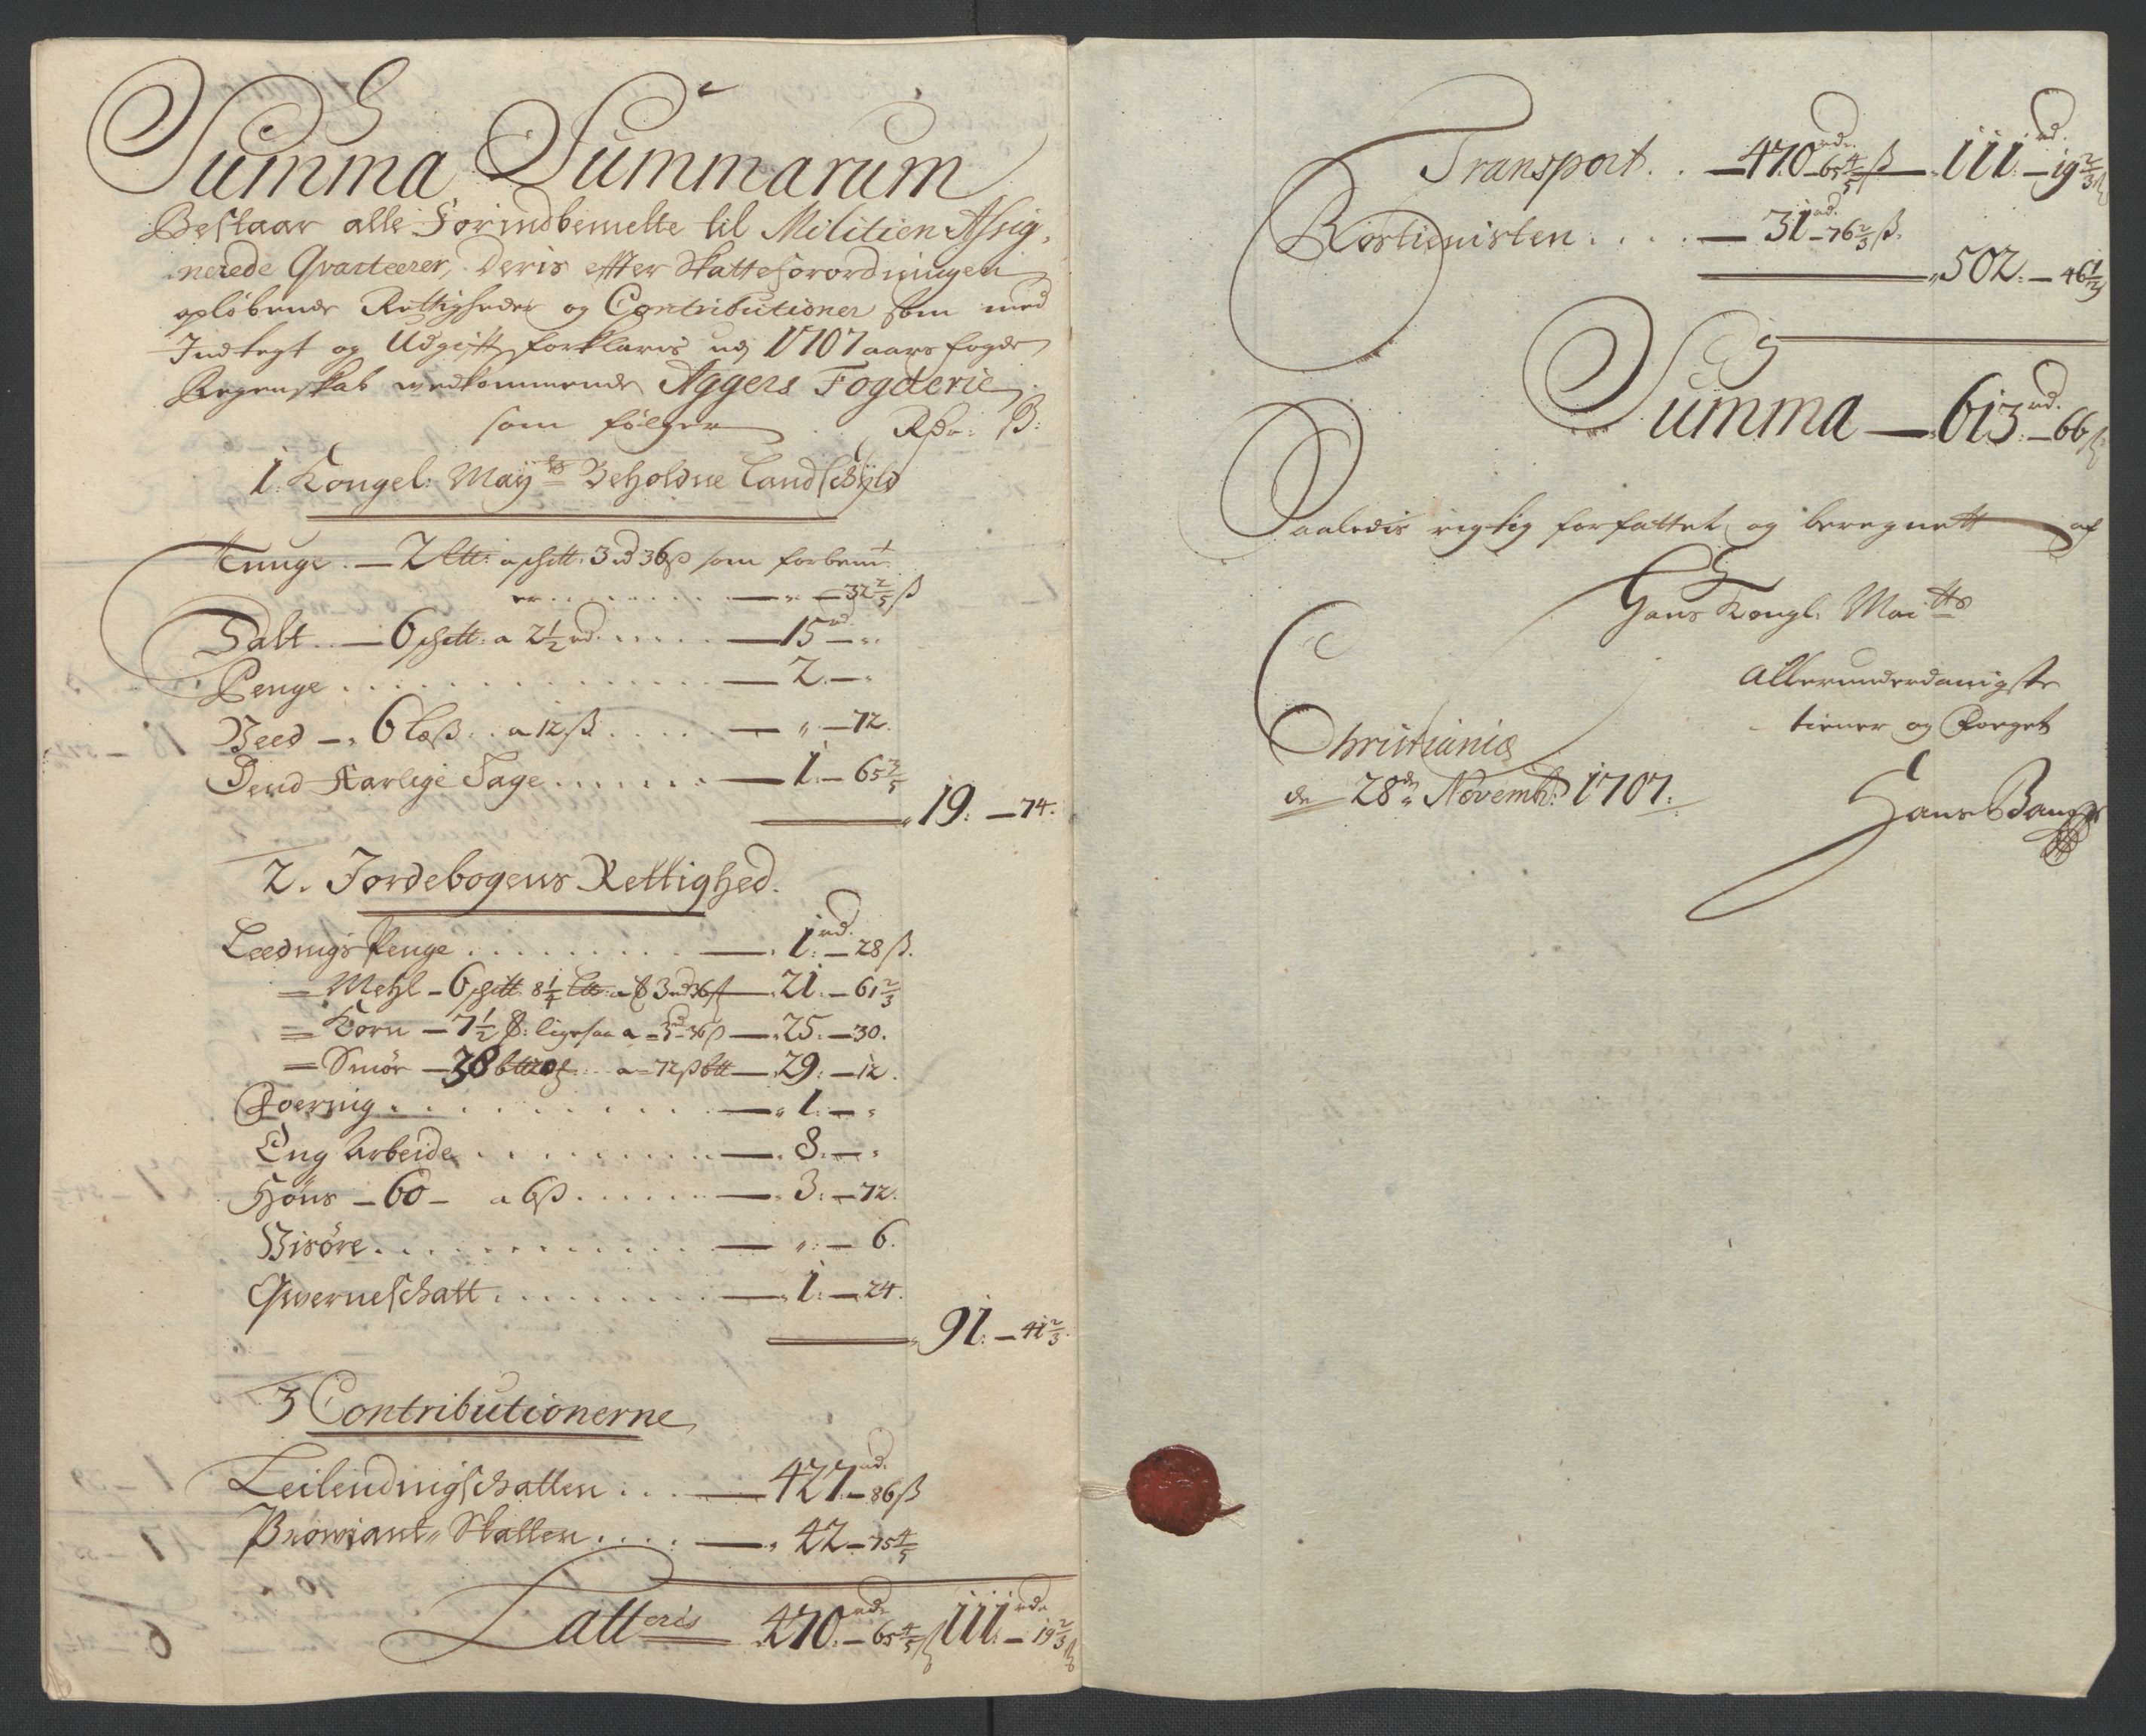 Summa Summarum
Bestaar alle Forindbemelte til Militien Assig,
nerede Qvarteerer, Deris effter Skatteforordningen
opløbende Rettigheder og Contributioner som med
Indtegt og Udgift forklaris udj 1707 aars fogde
Regenskab vedkommende Aggers Fogderie
som følger Rdr: ß:
1. Kongel: Mayts Beholdne Landschÿld
Tunge. — 2 Lt: a schtt: 3 rd 36 ß som forbemt
er . . . . . . . . — „ — 32 2/5 ß
Salt . . — 6 schtt: a 2 1/2 rd . . . . . — 15 rd — „
Penge . . . . . . . . . . . — 2. — „
Veed — „ 6 læß . . a 12 ß . . . . . — „ — 72.
Dend Aarlige Tage . . . . . . — 1. — 65 3/5
19: — 74.
2. Jordebogens Rettighed.
Leedings Penge . . . . . . . . — 1 rd. — 28 ß.
= Mehl — 6 schtt: 8 1/4 Lt: a ß 3 rd 36 ß — 21. — 61 2/3
= Korn — 7 1/2 ß: ligesaa a — 3 rd 36 ß — 25. — 30.
= Smør — 38 . . . a — 72 ß btt — 29: — 12.
Foering . . . . . . . . . . — „ 1. — „
Eng Arbeide . . . . . . . . — 8. — „
Høns — 60 — a 6 ß . . . . . . — 3: — 72.
Visøre . . . . . . . . . . . — „: — 6.
Qverneschatt . . . . . . . . — 1: — 24.
91: — 41 2/3.
3 Contributionerne
Leilendingschatten . . . — 427 rd. — 86 ß
Proviant„ Skatten . . . . — 42 — 75 4/5
Latteris 470 rd. — 65 4/5 ß 111 rd. — 19 2/3 ß
Transport. . — 470 rd. — 65 4/5 ß — 111 rd. — 19 2/3 ß
Rostienisten . . . . — 31 rd. — 76 2/3 ß.
502. — 46 1/3
Summa — 613 rd. — 66 ß
Saaledis rigtig forfattet og beregnett af
Hans Kongl: Maitts
Allerunderdanigste
tiener og Foeget
Christiania
de 28de Novembr: 1707.
Hans Bang